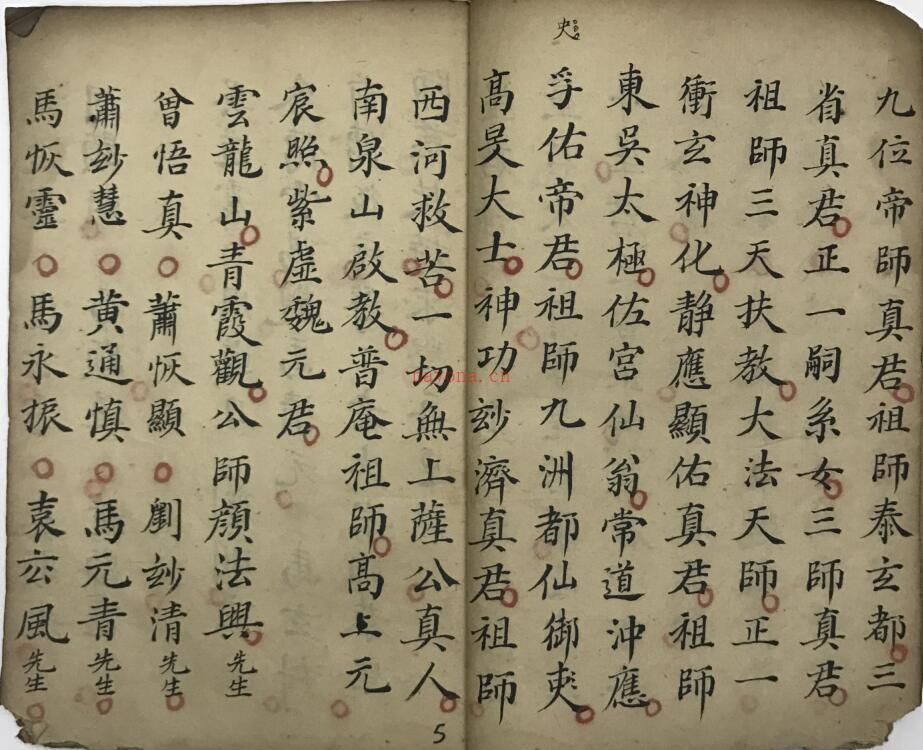 史
九位帝師真君祖師泰玄都三
省真君正一嗣系女三師真君
祖師三天扶教大法天師正一
衝玄神化静應顯佑真君祖師
東吳太極佐宮仙翁常道沖應
孚佑帝君祖師九洲都仙御
高旻大士神功玅濟真君祖師
西河救苦一切無上薩公真人
南泉山啟教普庵祖師高上元
宸照紫虛魏元君
雲龍山青霞觀公師顏法興先生
曾悟真蕭恢顯劉玅清先生
蕭玅慧黃通慎馬元青先生
馬恢靈馬永振袁風先生
5
nayona.cn